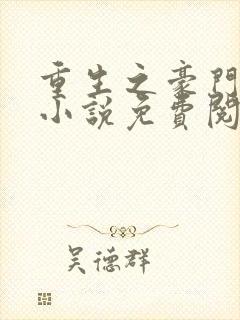 重生之豪門
小說免費閱
吴德群